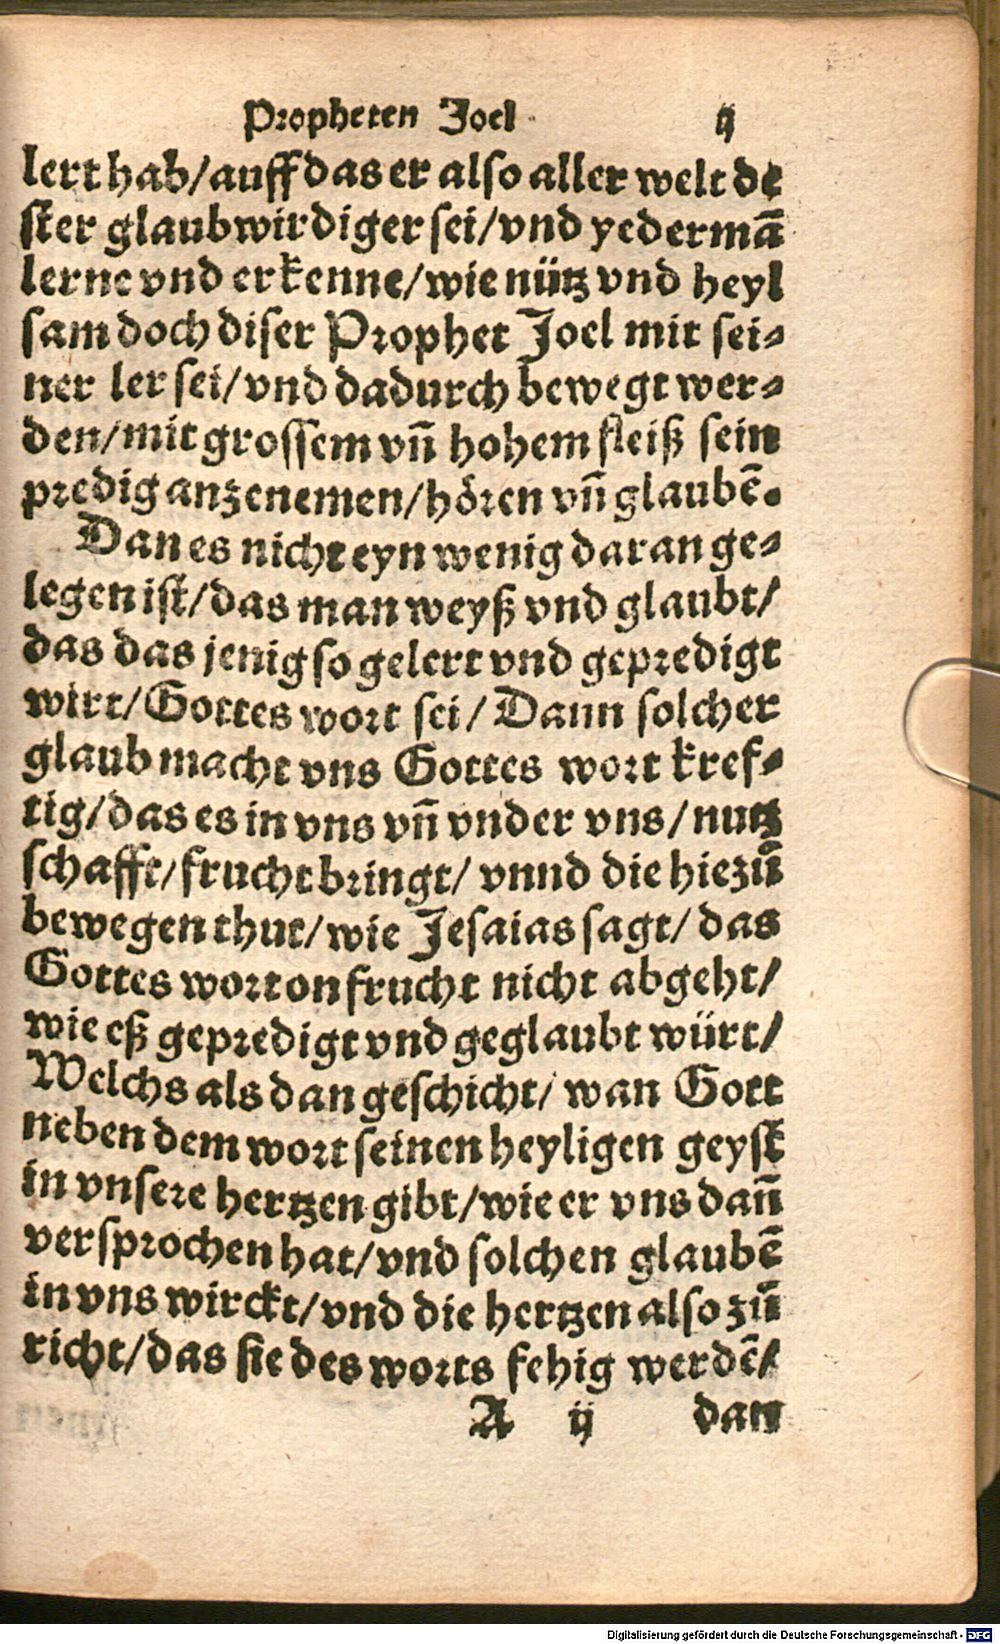 Propheten Joel ij
lert hab/auff das er also aller welt de
ster glaubwirdiger sei/vnd yedermā
lerne vnd erkenne/wie nütz vnd heyl
sam doch diser Prophet Joel mit sei⸗
ner ler sei/vnd dadurch bewegt wer⸗
den/mit grossem vñ hohem fleiß sein
predig anzenemen/hören vñ glaubē.
Dan es nicht eyn wenig daran ge⸗
legen ist/das man weyß vnd glaubt/
das das jenig so gelert vnd gepredigt
wirt/Gottes wort sei/Dann solcher
glaub macht vns Gottes wort kref⸗
tig/das es in vns vñ vnder vns/nutz
schafft/frucht bringt/vnnd die hiezů
bewegen thut/wie Jesaias sagt/das
Gottes wort on frucht nicht abgeht/
wie eß gepredigt vnd geglaubt würt/
Welchs als dan geschicht/wan Gott
neben dem wort seinen heyligen geyst
in vnsere hertzen gibt/wie er vns dañ
versprochen hat/vnd solchen glaubē
in vns wirckt/vnd die hertzen also zů
richt/das sie des worts fehig werdē/
A ij dan
Digitalisierung gefördert durch die Deutsche Forschungsgemeinschaft - DFG